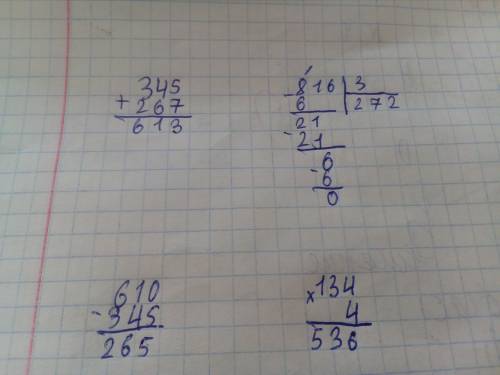 345
+ 267
613
- 816 | 3
6 272
21
- 21
6
- 6
0
610
- 345
265
x 134
4
536